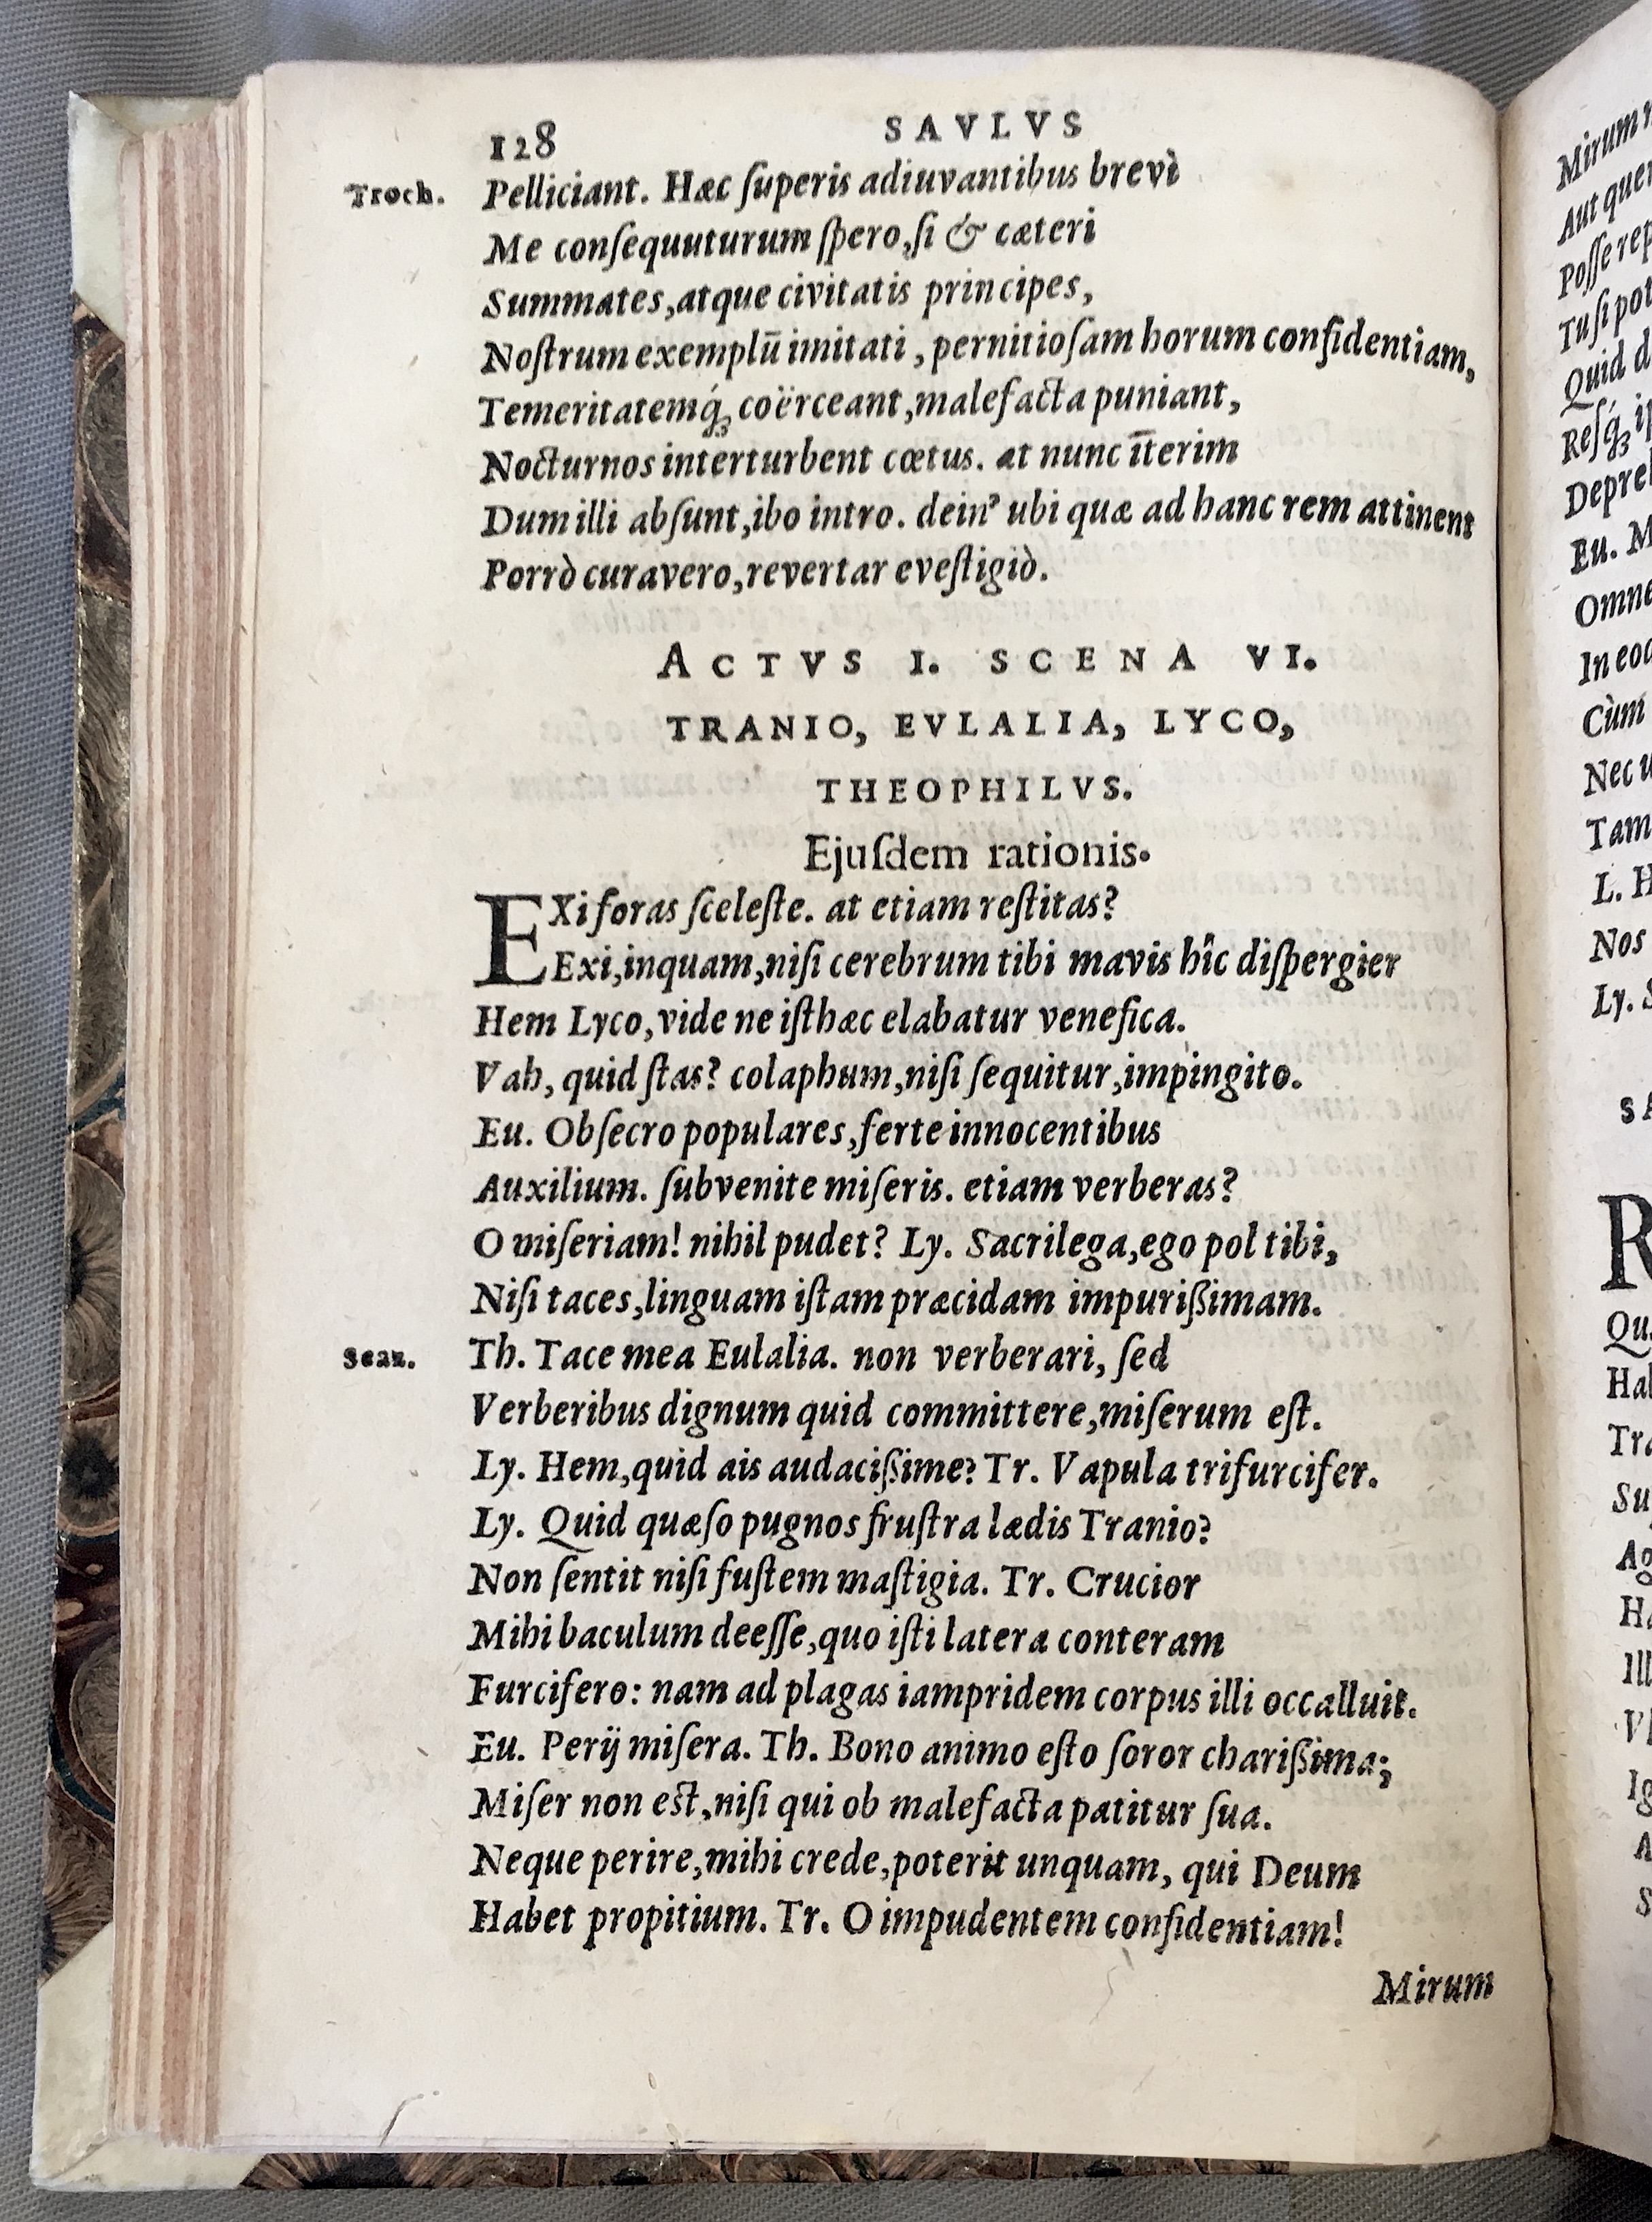 128 SAVLVS
Troch. Pelliciant. Hæc ſuperis adiuvantibus brevì
Me conſequuturum ſpero,ſi & cæteri
Summates,atque civitatis principes,
Noſtrum exemplū imitati , pernitioſam horum confidentiam,
Temeritatemq́ꝫ coërceant,malefacta puniant,
Nocturnos interturbent cœtus. at nunc īterim
Dum illi abſunt,ibo intro. dein' ubi quæ ad hanc rem attinent
Porrò curavero,revertar eveſtigiò.
ACTVS I. SCENA VI.
TRANIO, EVLALIA, LYCO,
THEOPHILVS.
Ejuſdem rationis.
EXi foras ſceleſte. at etiam reſtitas?
Exi,inquam,niſi cerebrum tibi mavis hîc diſpergier
Hem Lyco,vide ne iſthæc elabatur venefica.
Vah, quid ſtas? colaphum,niſi ſequitur,impingito.
Eu. Obſecro populares,ferte innocentibus
Auxilium. ſubvenite miſeris. etiam verberas?
O miſeriam! nihil pudet? Ly. Sacrilega,ego pol tibi,
Niſi taces,linguam iſtam præcidam impurißimam.
Scaz. Th. Tace mea Eulalia. non verberari, ſed
Verberibus dignum quid committere,miſerum eſt.
Ly. Hem,quid ais audacißime? Tr. Vapula trifurcifer.
Ly. Quid quæſo pugnos fruſtra lædis Tranio?
Non ſentit niſi fuſtem maſtigia. Tr. Crucior
Mihi baculum deeſſe,quo iſti latera conteram
Furcifero: nam ad plagas iampridem corpus illi occalluit.
Eu. Perij miſera. Th. Bono animo eſto ſoror charißima;
Miſer non eſt,niſi qui ob malefacta patitur ſua.
Neque perire,mihi crede,poterit unquam, qui Deum
Habet propitium. Tr. O impudentem confidentiam!
Mirum
Aut
Poſſe
Tu ſi
Quid
Eu.
Nec
L.
Nos
Ly.